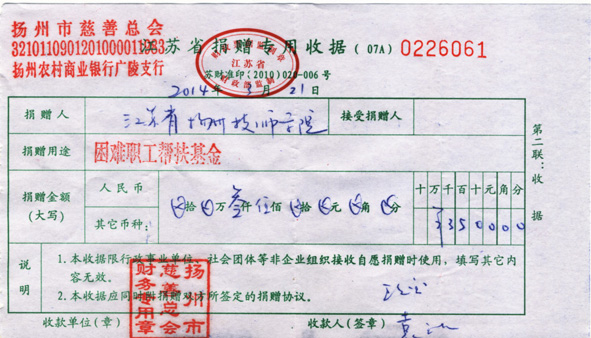 扬州市慈善总会
3210110901201000011383
扬州农村商业银行广陵支行
江苏省捐赠专用收据 (07A) 0226061
江苏省
财政部监制
苏财准印(2010)020-006号
2014年3月21日
捐赠人 江苏省扬州技师学院 接受捐赠人
捐赠用途 困难职工帮扶基金
捐赠金额(大写)
人民币 拾万叁仟伍佰拾元角分
十万千百十元角分
¥350000
其它币种:
第二联:收据
说明
1.本收据限行政事业单位、社会团体等非企业组织接收自愿捐赠时使用,填写其它内容无效。
2.本收据应同时附捐赠双方所签定的捐赠协议。
扬州市慈善总会财务专用章
收款单位(章) 收款人(签章)